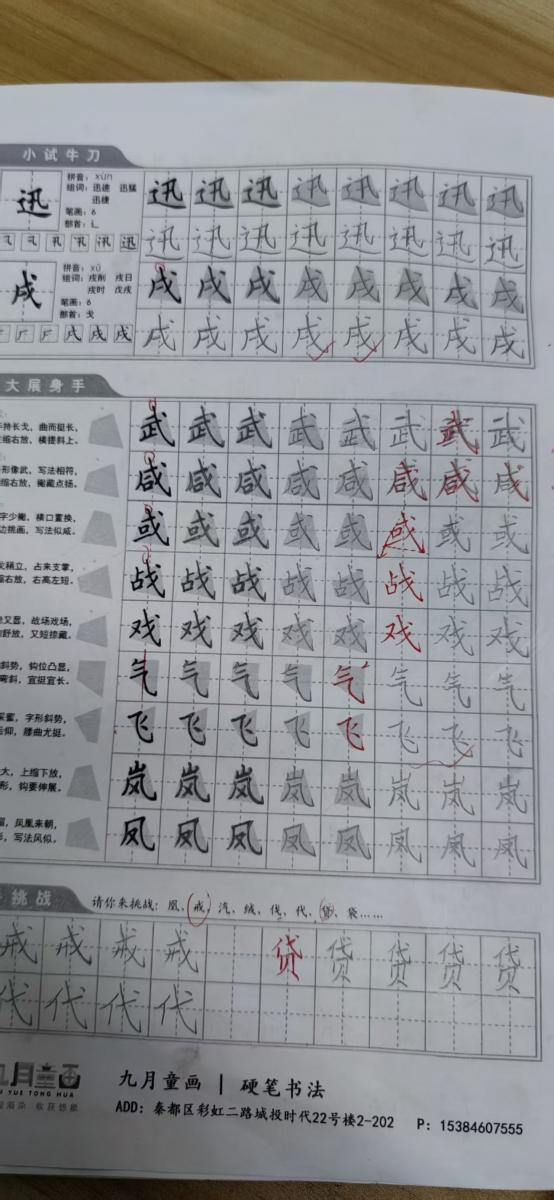 小试牛刀
迅
拼音：xùn
组词：迅速 迅猛
迅捷
笔画：6
部首：辶
迅 迅 迅 迅 迅 迅 迅 迅
迅 迅 迅 迅 迅 迅 迅 迅
戌
拼音：xū
组词：戌削 戌日
戌时 戊戌
笔画：6
部首：戈
戌 戌 戌 戌 戌 戌 戌 戌
戌 戌 戌 戌 戌 戌 戌 戌
大展身手
手持长戈，曲而挺长，
缩右放，横提斜上。
武 武 武 武 武 武 武 武
形像武，写法相符，
缩右放，撇藏点扬。
咸 咸 咸 咸 咸 咸 咸 咸
字少撇，横口置换，
边挑画，写法似咸。
或 或 或 或 或 或 或 或
稍立，占来支掌，
缩右放，右高左短。
战 战 战 战 战 战 战 战
又显，故场戏场，
舒放，又短捺藏。
戏 戏 戏 戏 戏 戏 戏 戏
斜势，钩位凸显，
弯斜，宜挺宜长。
气 气 气 气 气 气 气 气
采蜜，字形斜势，
后仰，腰曲尤挺。
飞 飞 飞 飞 飞 飞 飞 飞
大，上缩下放，
形，钩要伸展。
岚 岚 岚 岚 岚 岚 岚 岚
凤凰来朝，
写法风似。
凤 凤 凤 凤 凤 凤 凤 凤
挑战
请你来挑战：凰、戒、汽、绒、伐、代、贷、袋……
戒 戒 戒 戒 贷 贷 贷 贷 贷
代 代 代 代
九月童画
JIU YUE TONG HUA
九月童画 | 硬笔书法
ADD：秦都区彩虹二路城投时代22号楼2-202 P：15384607555